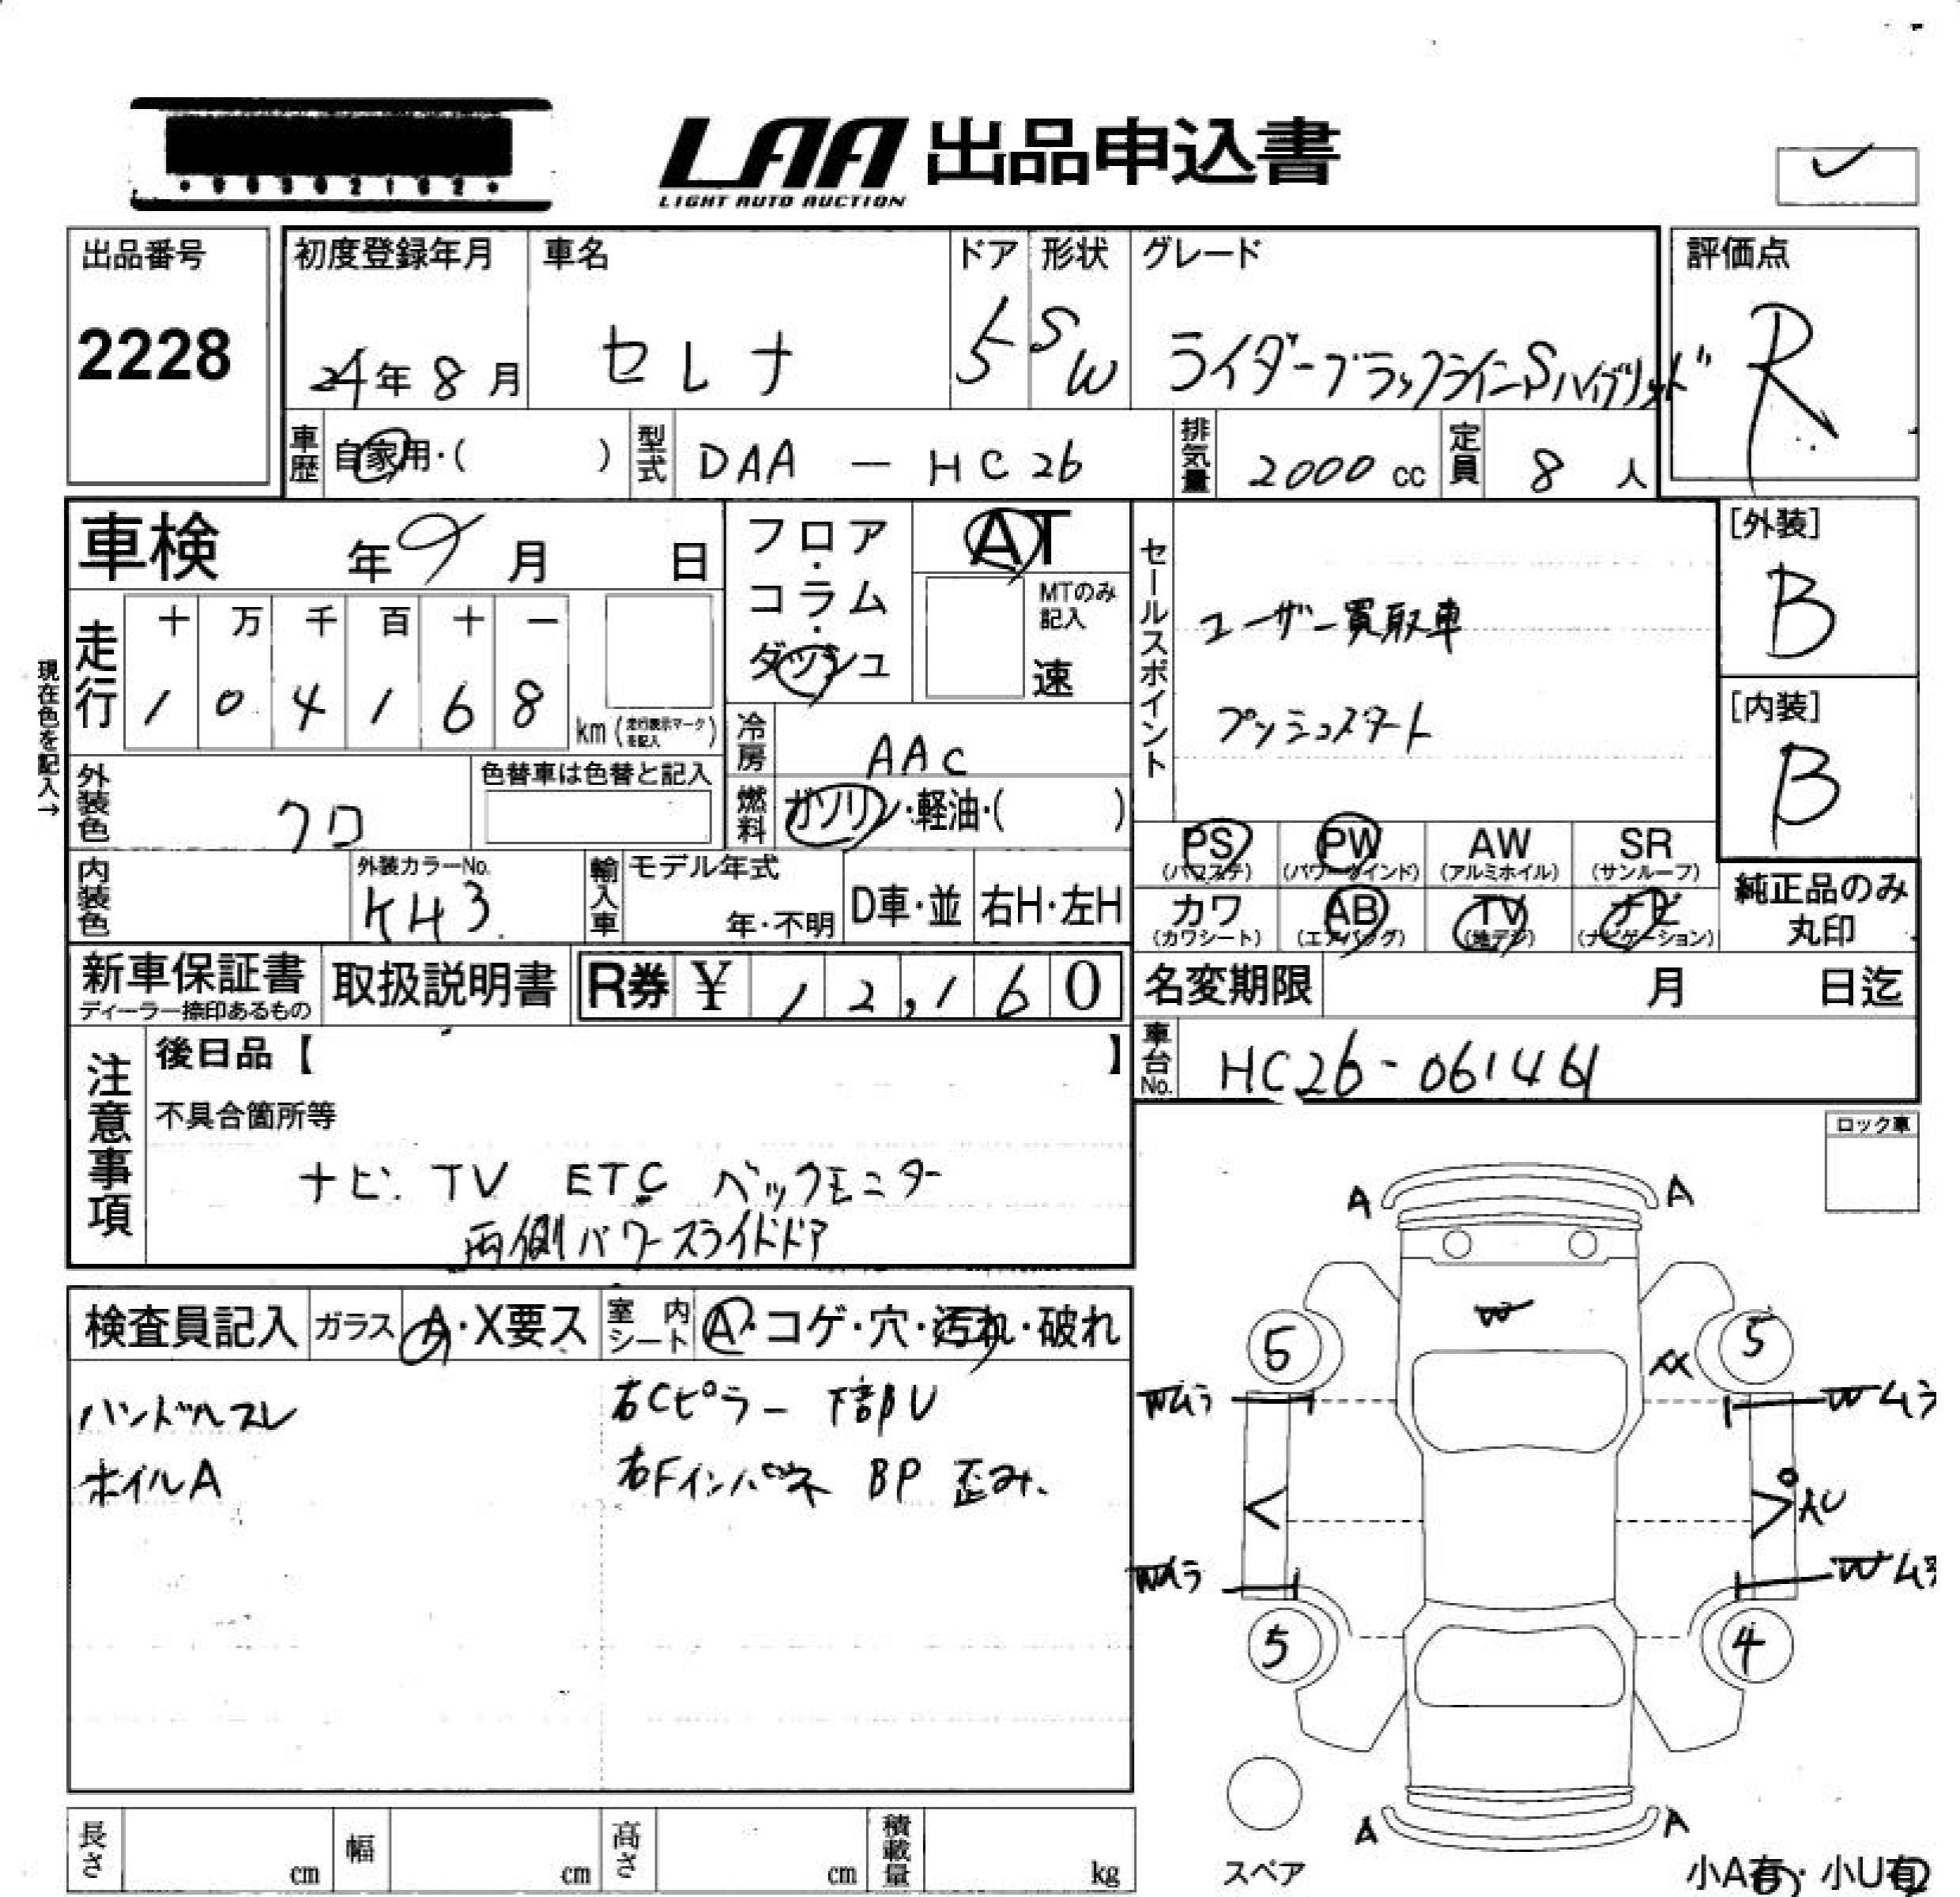 LAA 出品申込書
LIGHT AUTO AUCTION
出品番号
2228
初度登録年月
24年8月
車名
セレナ
ドア
5
形状
SW
グレード
ライダーブラックラインSハイブリッド
評価点
R
車歴
自家用・( )
型式
DAA - HC26
排気量
2000 cc
定員
8 人
車検 年 月 日
フロア・コラム・ダッシュ
AT
MTのみ記入
速
セールスポイント
ユーザー買取車
プッシュスタート
[外装]
B
[内装]
B
現在色を記入→
走行
十 万 千 百 十 一
1 0 4 1 6 8
km (走行表示マークを記入)
冷房
AAC
燃料
ガソリン・軽油・( )
外装色
クロ
色替車は色替と記入
内装色
外装カラーNo.
KH3
輸入車
モデル年式
年・不明
D車・並
右H・左H
PS
(パワステ)
PW
(パワーウインド)
AW
(アルミホイル)
SR
(サンルーフ)
カワ
(カワシート)
AB
(エアバッグ)
TV
(地デジ)
ナビ
(ナビゲーション)
純正品のみ
丸印
新車保証書
ディーラー捺印あるもの
取扱説明書
R券 ¥ 12,160
名変期限 月 日迄
車台No.
HC26-061461
注意事項
後日品【 】
不具合箇所等
ナビ TV ETC バックモニター
両側パワースライドドア
ロック車
検査員記入
ガラス
A・X要ス
室内シート
A・コゲ・穴・汚れ・破れ
ハンドルスレ
ホイルA
右Cピラー 下部U
右Fインパネ BP 歪み、
A A
W
5 5
XX
Wムラ Wムラ
AU
Wムラ Wムラ
5 4
A A
スペア
小A有・小U有
長さ cm
幅 cm
高さ cm
積載量 kg